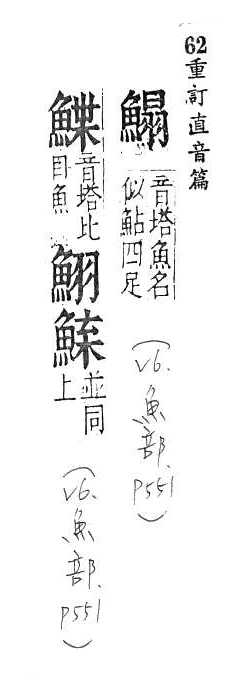 62重訂直音篇
鰨音塔魚名似鮎四足
(v6.魚部.p551)
鰈音塔比目魚䱻𩶱並同上
(v6.魚部.p551)